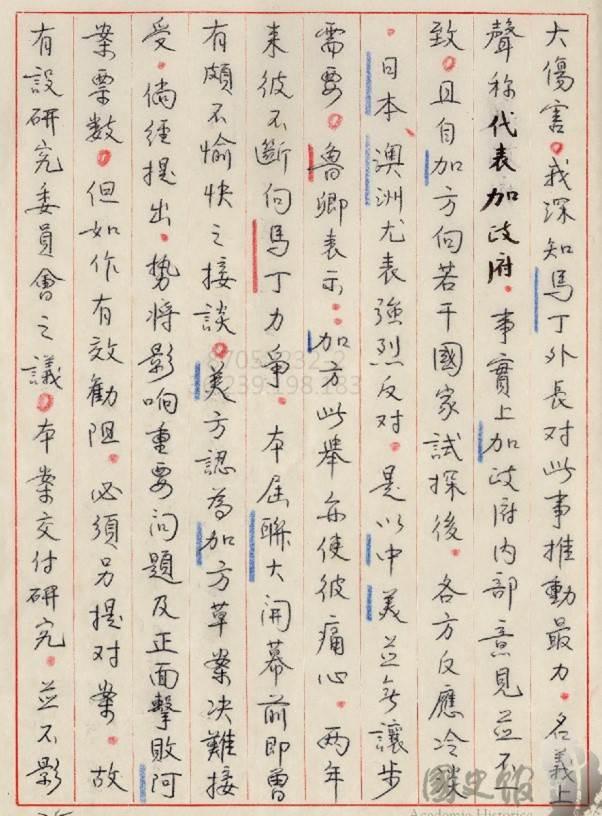 大傷害。我深知馬丁外長对此事推動最力。名義上
聲称代表加政府。事實上加政府内部意見並不一
致。且自加方向若干國家試探後。各方反應冷淡
。日本、澳洲尤表強烈反对。是以中美並無讓步
需要。魯卿表示：加方此舉亦使彼痛心。两年
来彼不斷向馬丁力爭。本屆聯大開幕前即曾
有頗不愉快之接談。美方認為加方草案决難接
受。倘經提出。势將影响重要问題及正面擊敗阿
案票数。但如作有效勸阻。必須另提对案。故
有設研究委員會之議。本案交付研究。並不影
國史館
Academia Historica